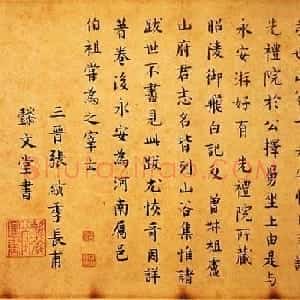 先禮院於公擇舅坐上由是與
永安游好有先禮院所藏
昭陵御飛白記及曾叔祖盧
山府君志名皆列山谷集惟諸
跋世不盡見此跋尤恢奇因詳
著卷後永安為河南屬邑
伯祖嘗為之宰云
三晉張縯季長甫
懿文堂書